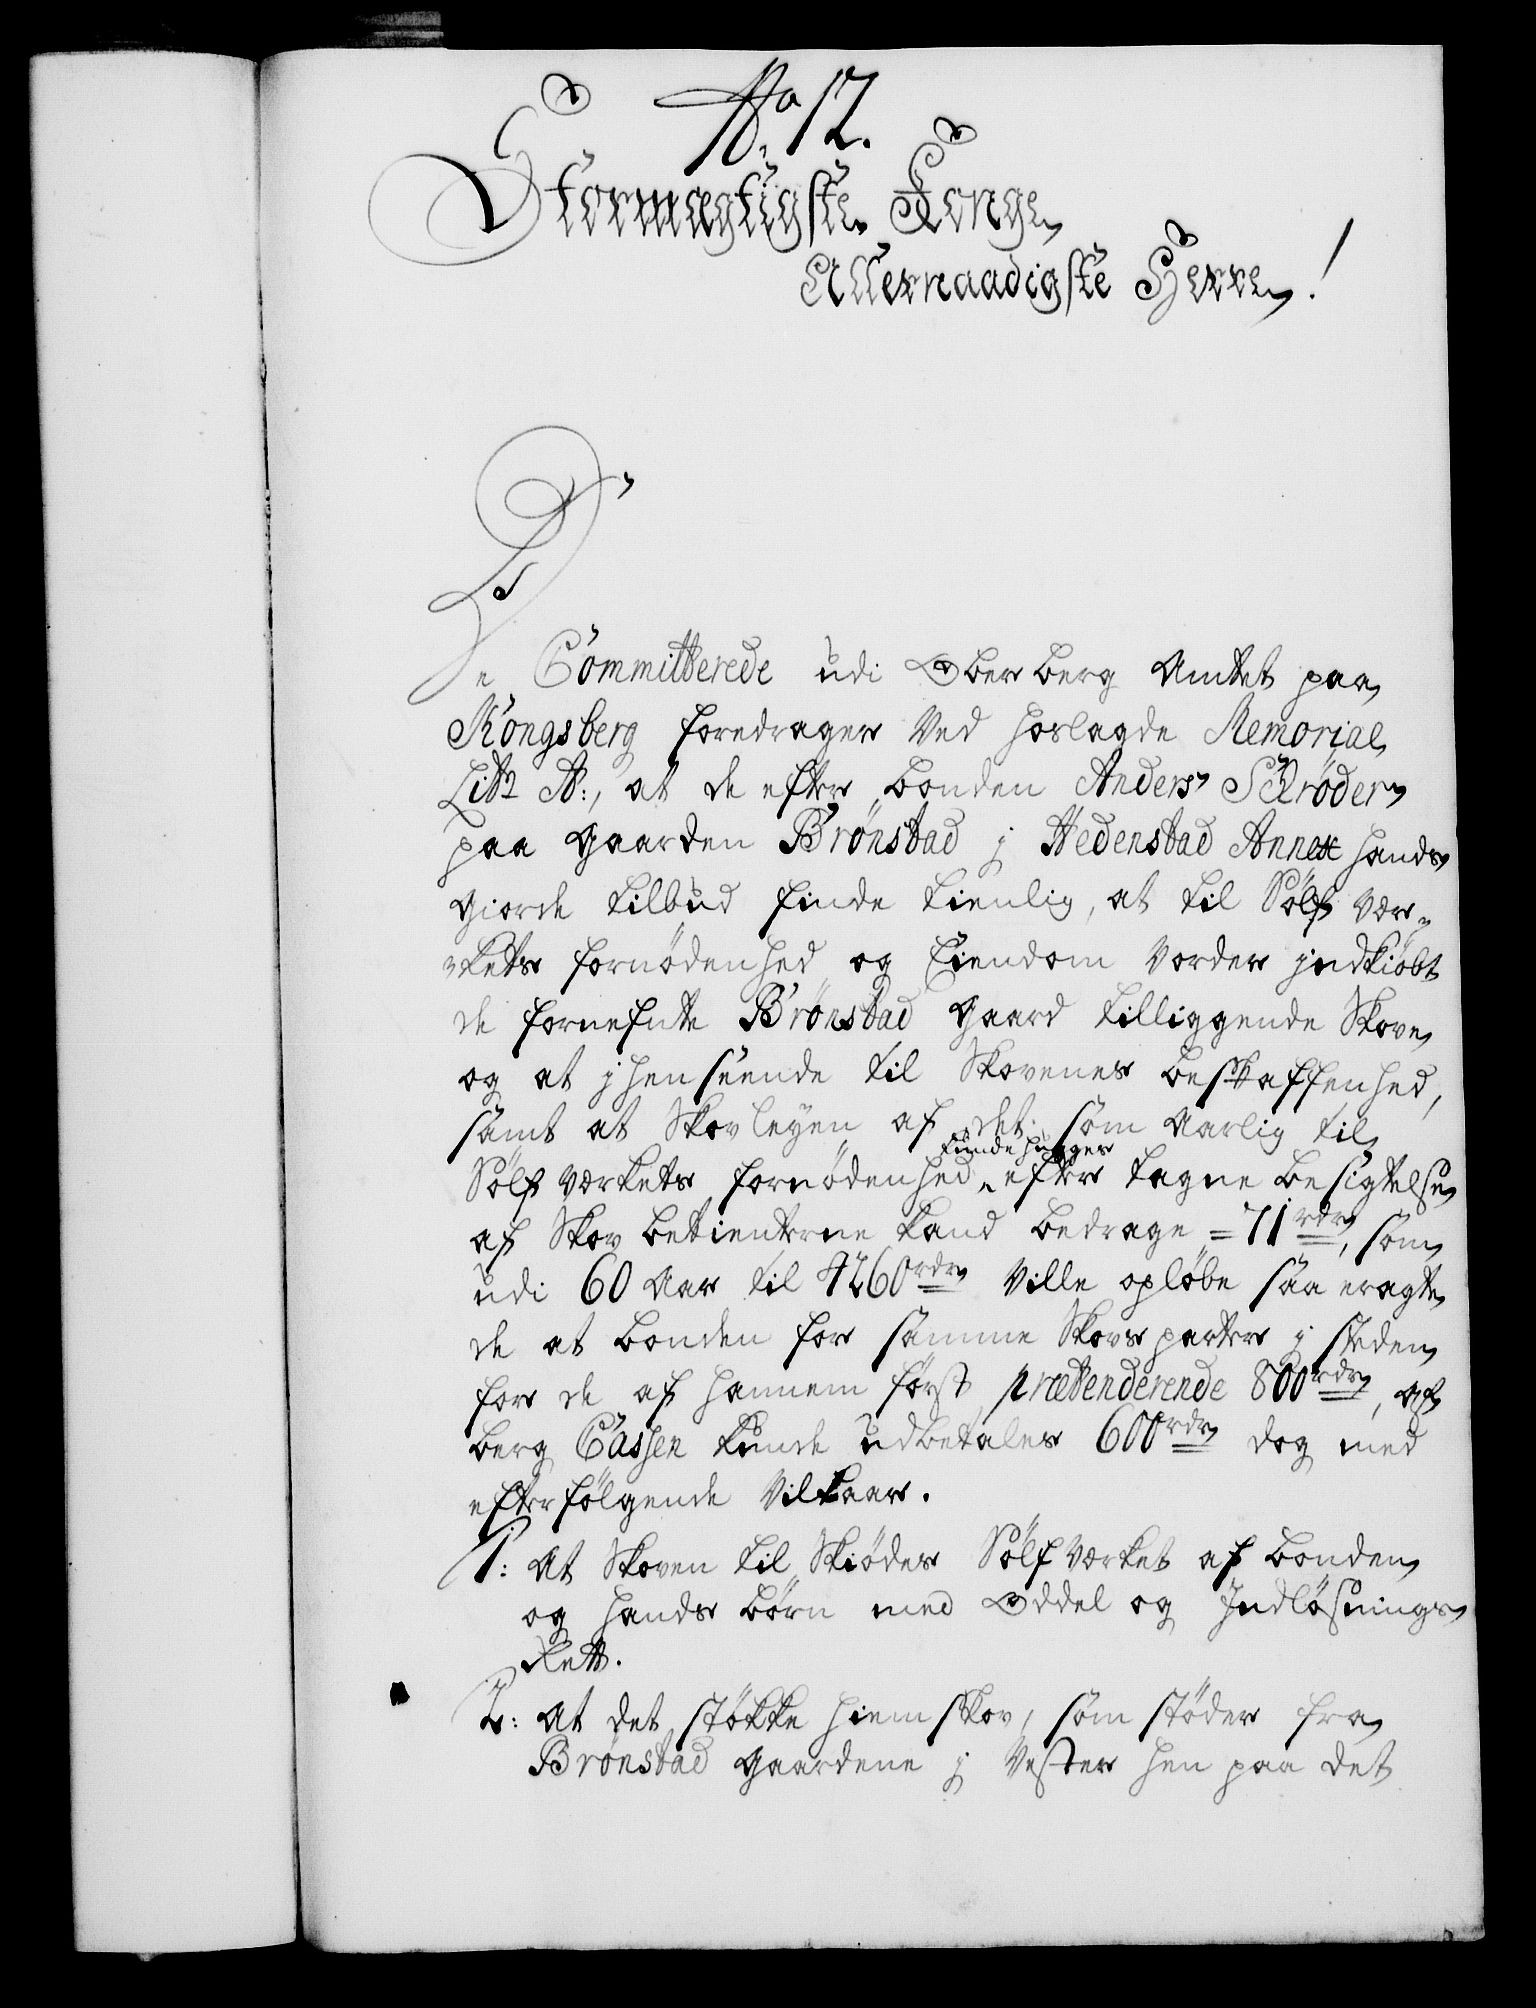 No 12.
Stormægtigste Konge,
Allernaadigste Herre!
De Committerede udi Ober berg Amtet paa
Kongsberg foredrager ved hoslagde Memorial
Litr A:, at de efter bonden Anders Schrøder
paa gaarden Brønstad j Hedenstad Annex hands
giorde tilbud finde tienlig, at til Sølf vær-
-kets fornødenhed og Eiendom vorder jndkiøbt
de fornefnte Brønstad gaard tilliggende Skove
og at j henseende til Skovenes beskaffenhed,
samt at Skovleyen af det som aarlig til
Sølf værkets fornødenhed kunde hugges efter tagne besigtelse
af Skov betienterne kand bedrage = 71 rdr, som
udi 60 Aar til 4260 rdr ville opløbe saa eragte
de at bonden for samme Skovs parter j steden
for de af hannem først prætenderende 800 rdr, af
berg Cassen kunde udbetales 600 rdr dog med
efterfølgende vilkaar.
1: at Skoven til Skiødes Sølfværket af bonden
og hands børn med Oddel og Jndløsnings
Rett.
2: at det støkke hiemskov, som støder fra
Brønstad gaardene j Vester hen paa det